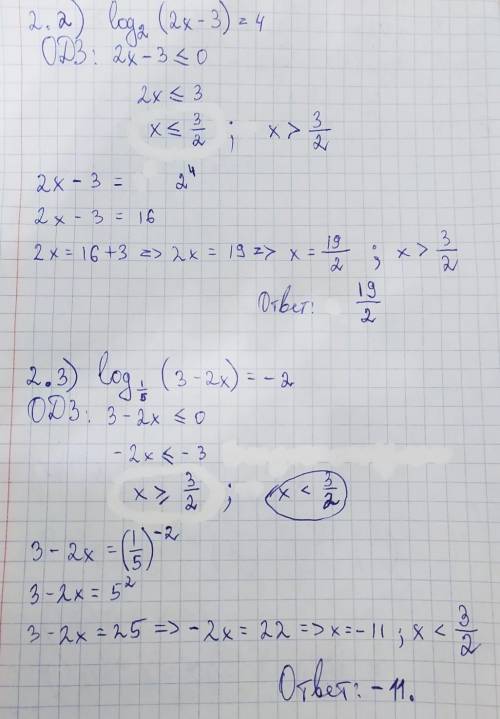 2.2) log₂ (2x - 3) = 4
ОДЗ: 2x - 3 ≤ 0
2x ≤ 3
x ≤ 3/2 ; x > 3/2
2x - 3 = 2⁴
2x - 3 = 16
2x = 16 + 3 => 2x = 19 => x = 19/2 ; x > 3/2
Ответ: 19/2
2.3) log_{1/5} (3 - 2x) = -2
ОДЗ: 3 - 2x ≤ 0
-2x ≤ -3
x ≥ 3/2 ; x < 3/2
3 - 2x = (1/5)⁻²
3 - 2x = 5²
3 - 2x = 25 => -2x = 22 => x = -11 ; x < 3/2
Ответ: -11.